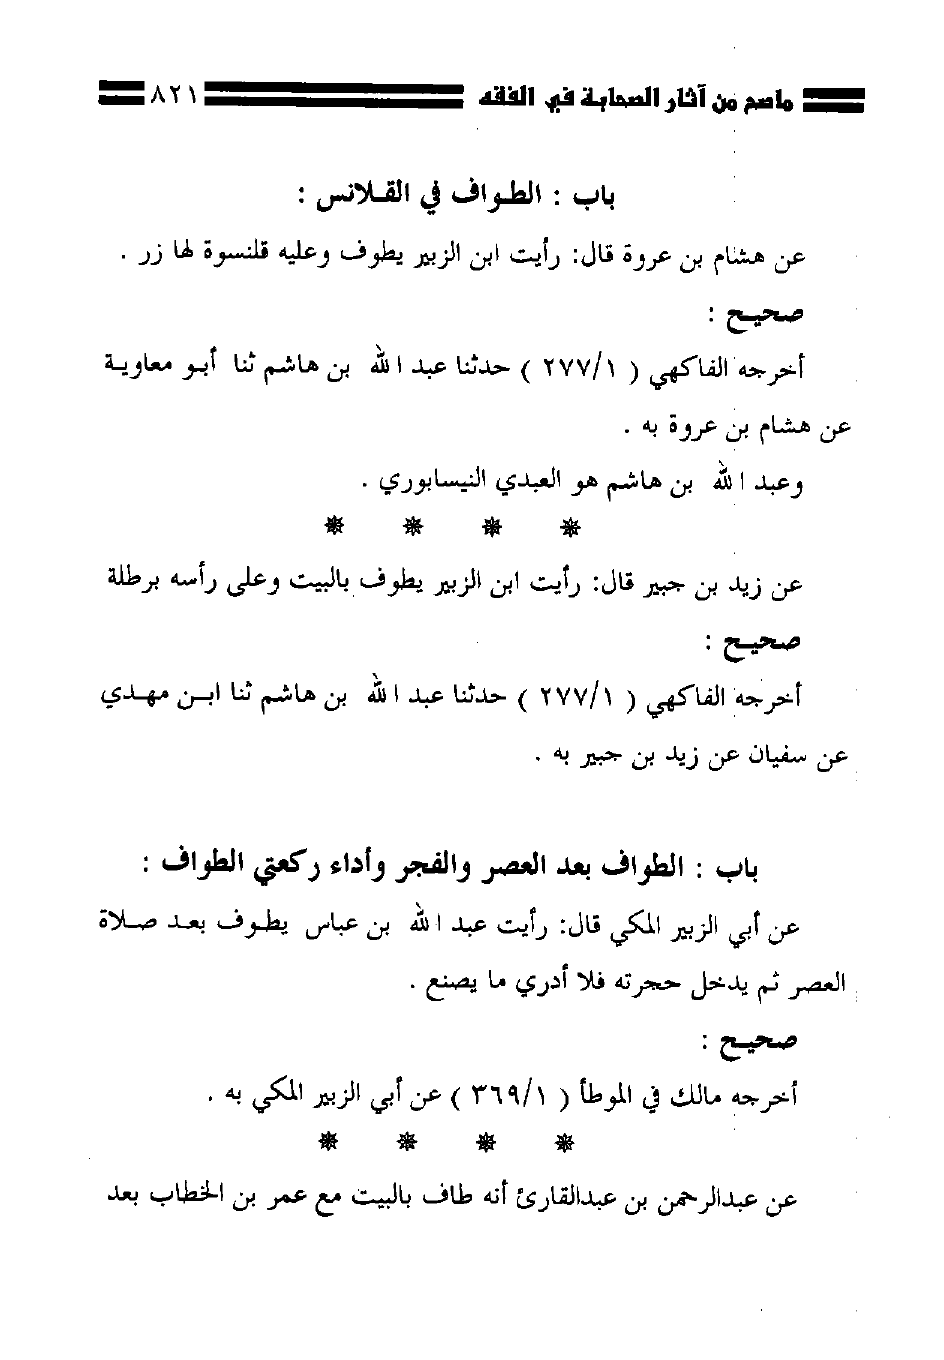 ماصح من آثار الصحابة في الفقه ٨٢١
باب : الطواف في القلانس :
عن هشام بن عروة قال: رأيت ابن الزبير يطوف وعليه قلنسوة لها زر .
صحيح :
أخرجه الفاكهي ( ٢٧٧/١ ) حدثنا عبد الله بن هاشم ثنا أبو معاوية
عن هشام بن عروة به .
وعبد الله بن هاشم هو العبدي النيسابوري .
* * * *
عن زيد بن جبير قال: رأيت ابن الزبير يطوف بالبيت وعلى رأسه برطلة
صحيح :
أخرجه الفاكهي ( ٢٧٧/١ ) حدثنا عبد الله بن هاشم ثنا ابن مهدي
عن سفيان عن زيد بن جبير به .
باب : الطواف بعد العصر والفجر وأداء ركعتي الطواف :
عن أبي الزبير المكي قال: رأيت عبد الله بن عباس يطوف بعد صلاة
العصر ثم يدخل حجرته فلا أدري ما يصنع .
صحيح :
أخرجه مالك في الموطأ ( ٣٦٩/١ ) عن أبي الزبير المكي به .
* * * *
عن عبدالرحمن بن عبدالقارئ أنه طاف بالبيت مع عمر بن الخطاب بعد